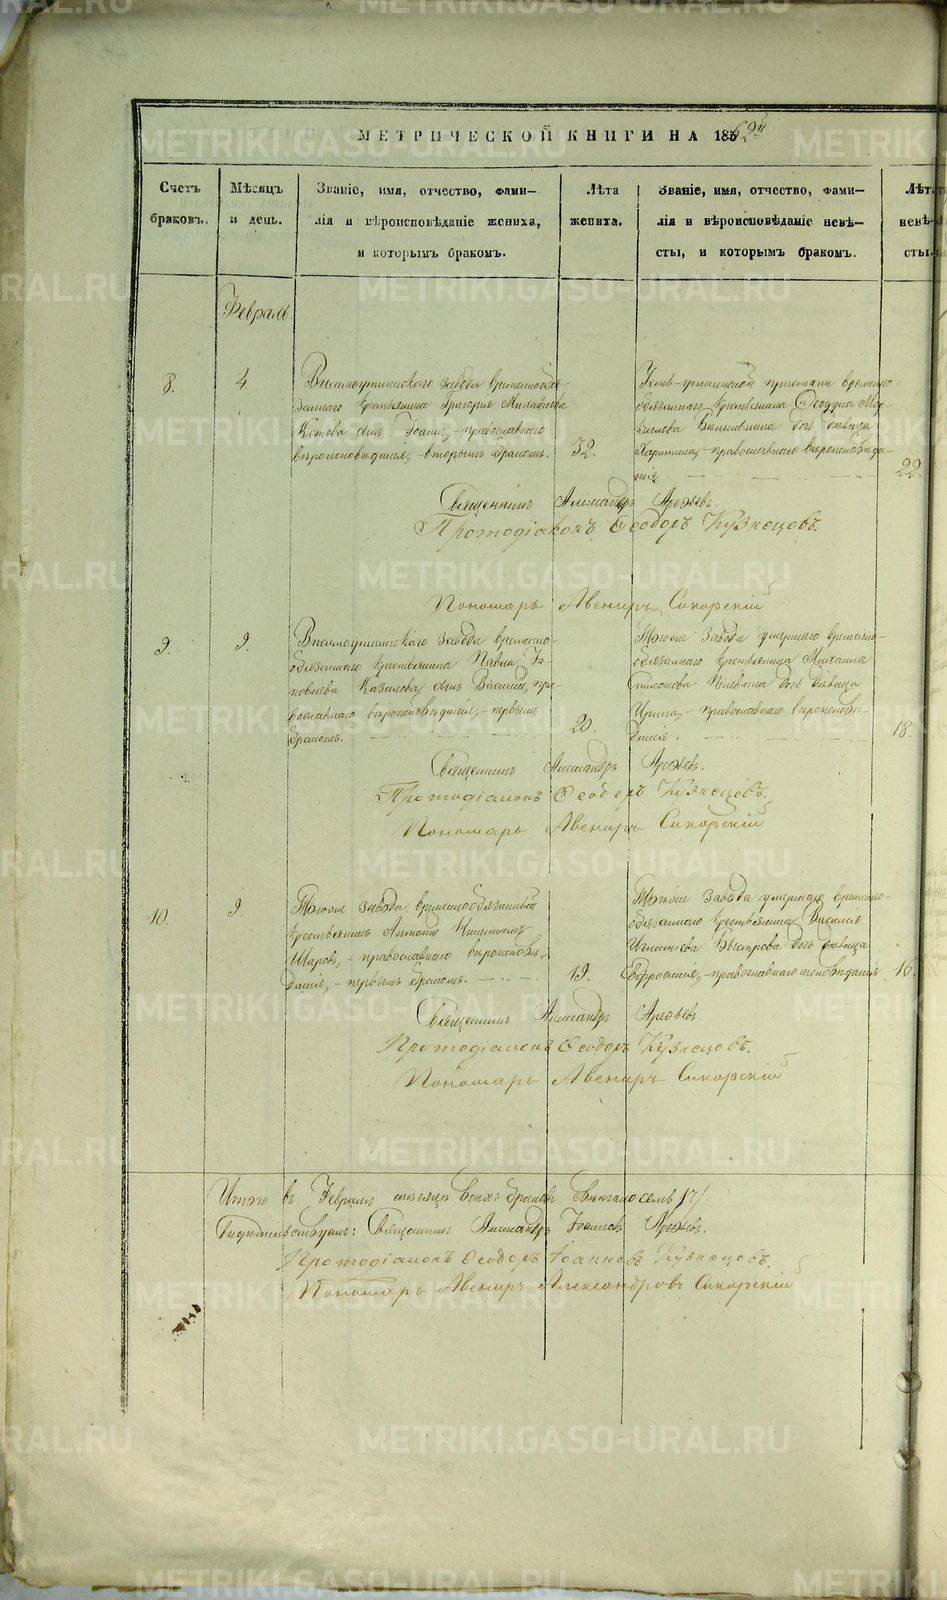 МЕТРИЧЕСКОЙ КНИГИ НА 1862й
Счетъ браковъ.
Мѣсяцъ и день.
Званіе, имя, отчество, фами-
лія и вѣроисповѣданіе жениха,
и которымъ бракомъ.
Лѣта жениха.
Званіе, имя, отчество, фами-
лія и вѣроисповѣданіе невѣ-
сты, и которымъ бракомъ.
Лѣта невѣ-
сты.
Февраль.
8.
4
Висимоуткинскаго завода временнообя-
заннаго крестьянина Григорія Михайлова
Котова сынъ Іоаннъ, православнаго
вѣроисповѣданія, вторымъ бракомъ.
32.
Усть-уткинской пристани временно-
обязаннаго крестьянина Ѳеодора
дочь дѣвица
Харитина, православнаго вѣроисповѣда-
нія.
22.
Священникъ Александръ
Протодіаконъ Ѳеодоръ Кузнецовъ.
Пономарь Авениръ Сикорскій
9.
9.
Висимоуткинскаго завода временно-
обязаннаго крестьянина Павла Яко
влева Казакова сынъ Василій, пра-
вославнаго вѣроисповѣданія, первымъ
бракомъ.
20.
Тогоже завода умершаго временно-
обязаннаго крестьянина Михаила
дочь дѣвица
Ирина, православнаго вѣроисповѣ-
данія.
18.
Священникъ Александръ
Протодіаконъ Ѳеодоръ Кузнецовъ.
Пономарь Авениръ Сикорскій
10.
9.
Тогоже завода временнообязанный
крестьянинъ Антоній Никитинъ
Шаровъ, православнаго вѣроисповѣ-
данія, первымъ бракомъ.
19.
Тогоже завода умершаго временно-
обязаннаго крестьянина Василія
Игнатьева Быстрова дочь дѣвица
Евфросинія, православнаго исповѣданія
16.
Священникъ Александръ
Протодіаконъ Ѳеодоръ Кузнецовъ.
Пономарь Авениръ Сикорскій
Итого въ Февралѣ мѣсяцѣ всѣхъ браковъ семь /7/.
Свидѣтельствуемъ: Священникъ Александръ Іоанновъ
Протодіаконъ Ѳеодоръ Іоанновъ Кузнецовъ.
Пономарь Авениръ Александровъ Сикорскій
METRIKI.GASO-URAL.RU